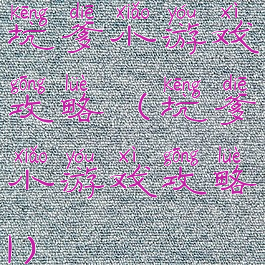 kēng diē xiǎo yóu xì
坑爹小游戏
gōng lüè kēng diē
攻略(坑爹
xiǎo yóu xì gōng lüè
小游戏攻略
|)